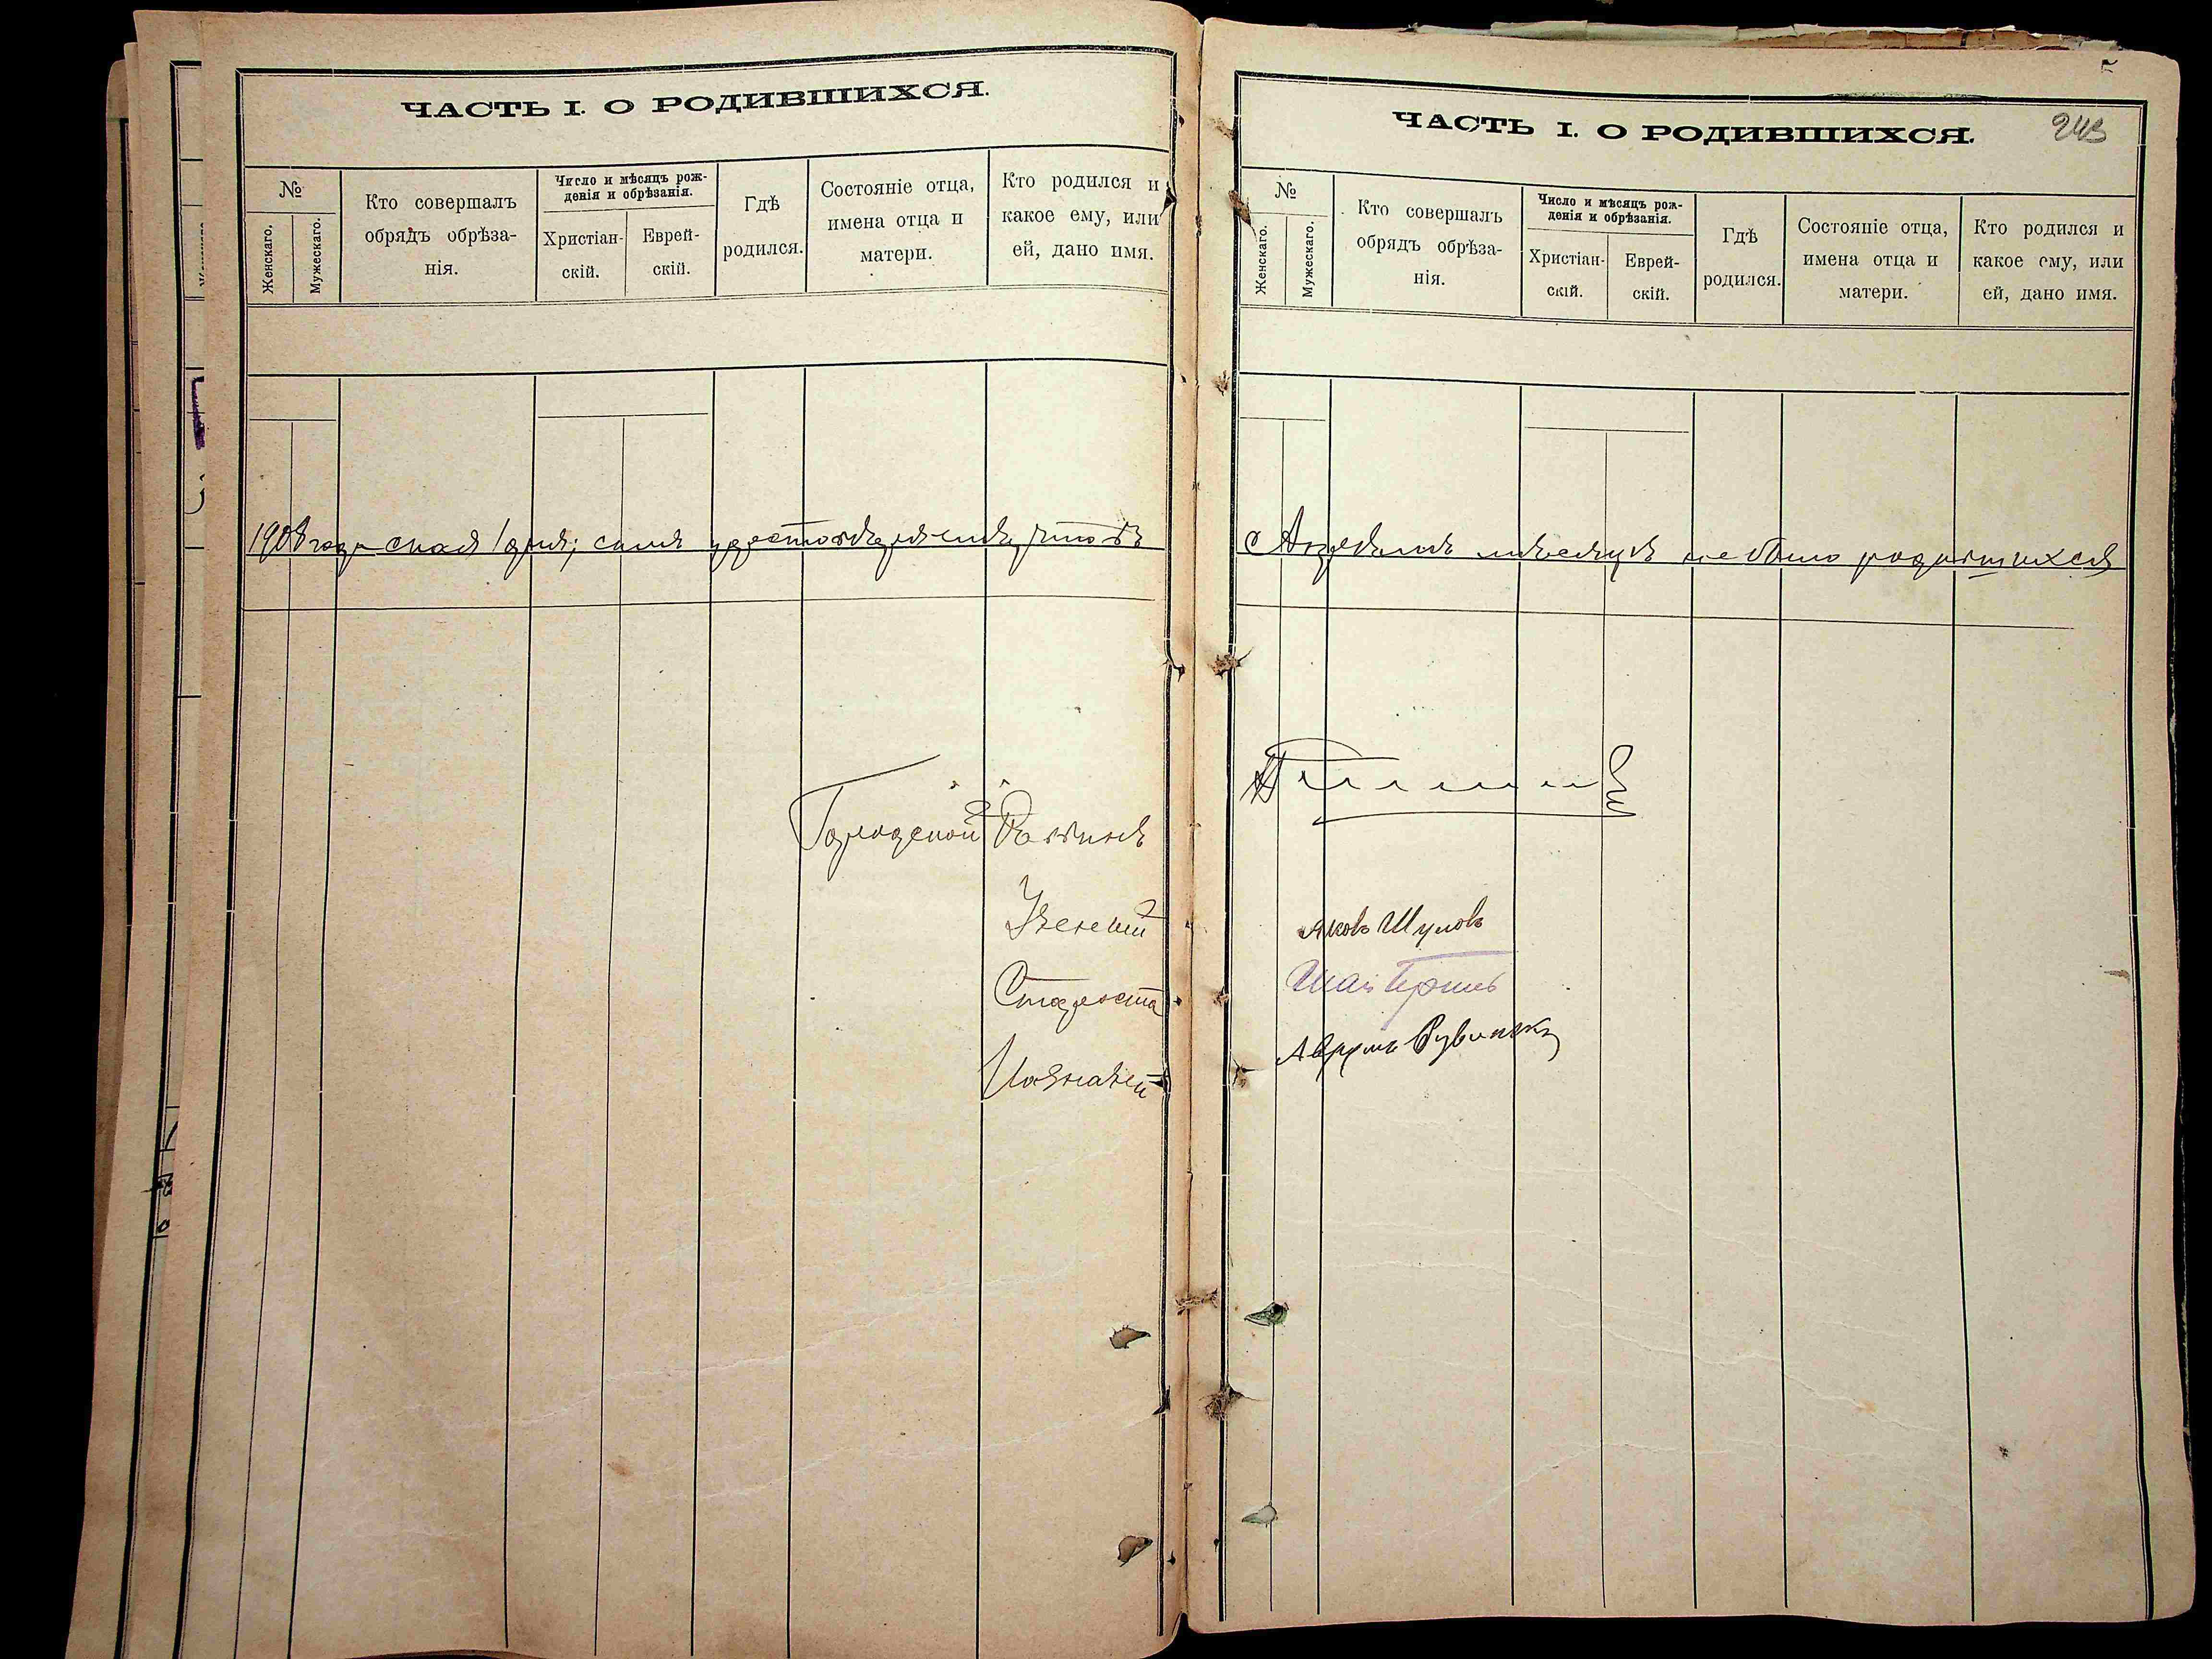 ЧАСТЬ I. О РОДИВШИХСЯ.
№
Женскаго.
Мужескаго.
Кто совершалъ
обрядъ обрѣза-
нія.
Число и мѣсяцъ рож-
денія и обрѣзанія.
Христіан-
скій.
Еврей-
скій.
Гдѣ
родился.
Состояніе отца,
имена отца и
матери.
Кто родился и
какое ему, или
ей, дано имя.
1908 года мая 1 дня; симъ удостовѣряемъ, что въ
Городской Раввинъ
Ученый
Староста
Казначей
5
243
ЧАСТЬ I. О РОДИВШИХСЯ.
№
Женскаго.
Мужескаго.
Кто совершалъ
обрядъ обрѣза-
нія.
Число и мѣсяцъ рож-
денія и обрѣзанія.
Христіан-
скій.
Еврей-
скій.
Гдѣ
родился.
Состояніе отца,
имена отца и
матери.
Кто родился и
какое ему, или
ей, дано имя.
Апрѣлѣ мѣсяцѣ не было родившихся
Яковъ Шуловъ